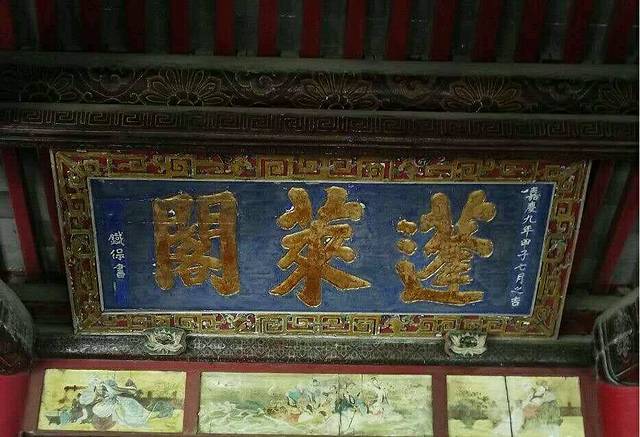 嘉慶九年甲子七月之吉
蓬萊閣
鐵保書